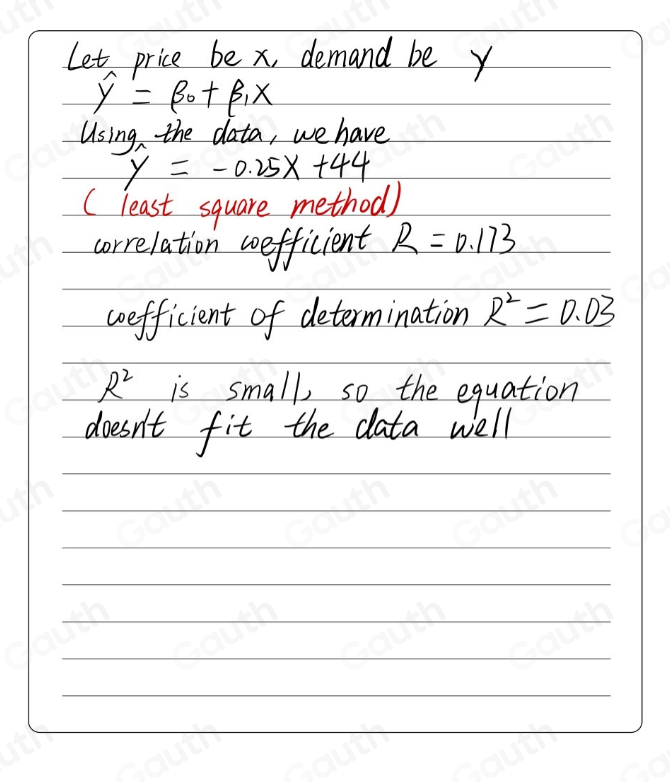 Let price be x, demand be y
ŷ = β₀ + β₁x
Using the data, we have
ŷ = -0.25x + 44
( least square method)
correlation coefficient R = 0.173
coefficient of determination R² = 0.03
R² is small, so the equation
doesn't fit the data well
Gauth